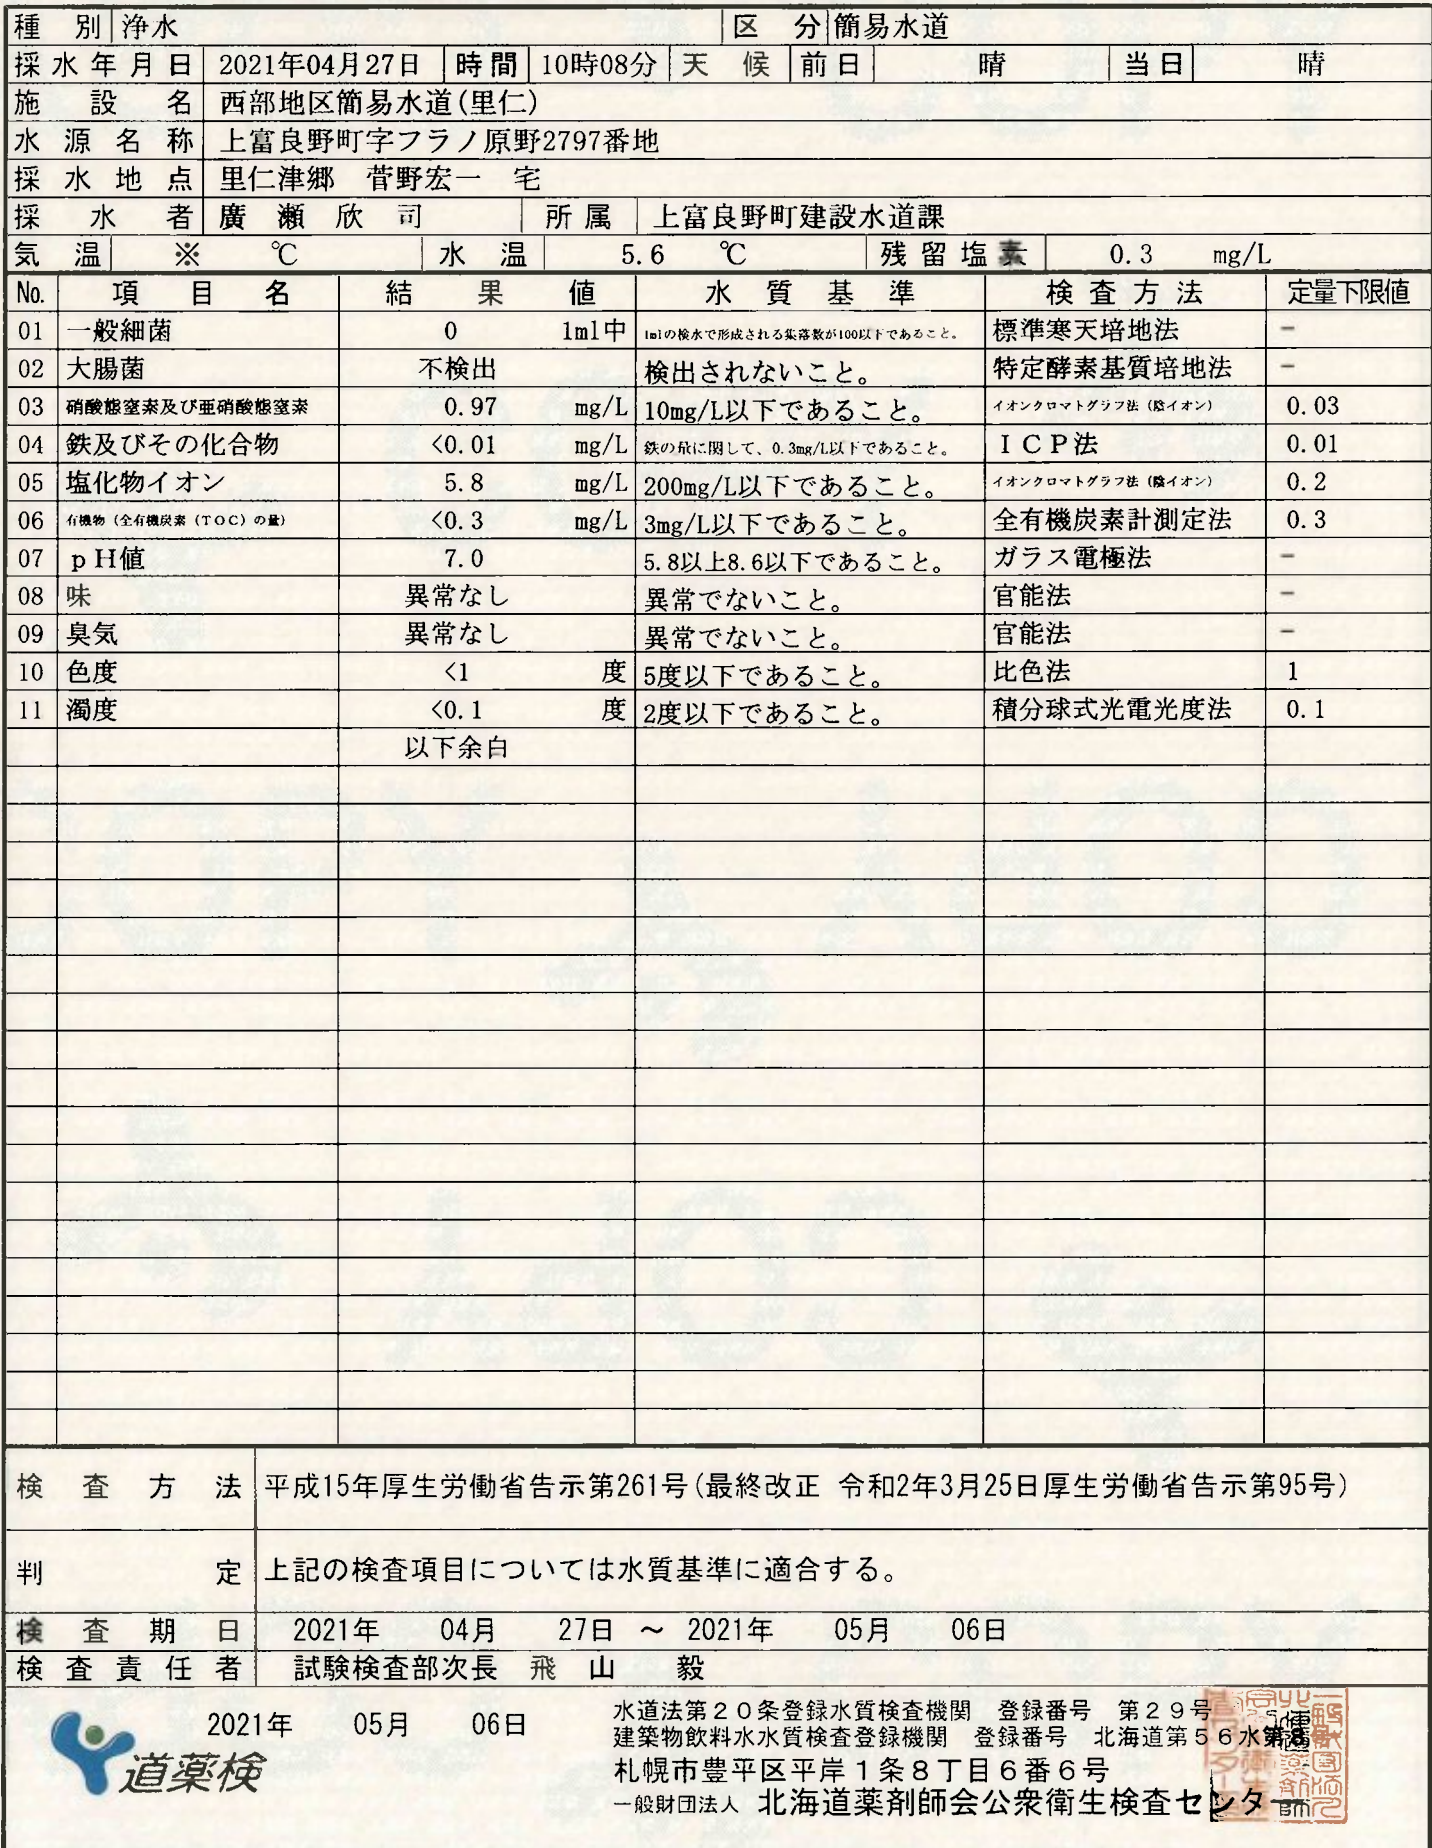 種別 浄水 区分 簡易水道
採水年月日 2021年04月27日 時間 10時08分 天候 前日 晴 当日 晴
施設名 西部地区簡易水道(里仁)
水源名称 上富良野町字フラノ原野2797番地
採水地点 里仁津郷 菅野宏一 宅
採水者 廣瀬欣司 所属 上富良野町建設水道課
気温 ※ ℃ 水温 5.6 ℃ 残留塩素 0.3 mg/L
No. 項目名 結果値 水質基準 検査方法 定量下限値
01 一般細菌 0 1ml中 1mlの検水で形成される集落数が100以下であること。 標準寒天培地法 −
02 大腸菌 不検出 検出されないこと。 特定酵素基質培地法 −
03 硝酸態窒素及び亜硝酸態窒素 0.97 mg/L 10mg/L以下であること。 イオンクロマトグラフ法（陰イオン） 0.03
04 鉄及びその化合物 <0.01 mg/L 鉄の量に関して、0.3mg/L以下であること。 ＩＣＰ法 0.01
05 塩化物イオン 5.8 mg/L 200mg/L以下であること。 イオンクロマトグラフ法（陰イオン） 0.2
06 有機物（全有機炭素（ＴＯＣ）の量） <0.3 mg/L 3mg/L以下であること。 全有機炭素計測定法 0.3
07 ｐＨ値 7.0 5.8以上8.6以下であること。 ガラス電極法 −
08 味 異常なし 異常でないこと。 官能法 −
09 臭気 異常なし 異常でないこと。 官能法 −
10 色度 <1 度 5度以下であること。 比色法 1
11 濁度 <0.1 度 2度以下であること。 積分球式光電光度法 0.1
以下余白
検査方法 平成15年厚生労働省告示第261号(最終改正 令和2年3月25日厚生労働省告示第95号)
判定 上記の検査項目については水質基準に適合する。
検査期日 2021年 04月 27日 ～ 2021年 05月 06日
検査責任者 試験検査部次長 飛山 毅
2021年 05月 06日
道薬検
水道法第２０条登録水質検査機関 登録番号 第２９号
建築物飲料水水質検査登録機関 登録番号 北海道第５６水第8
札幌市豊平区平岸１条８丁目６番６号
一般財団法人 北海道薬剤師会公衆衛生検査センター